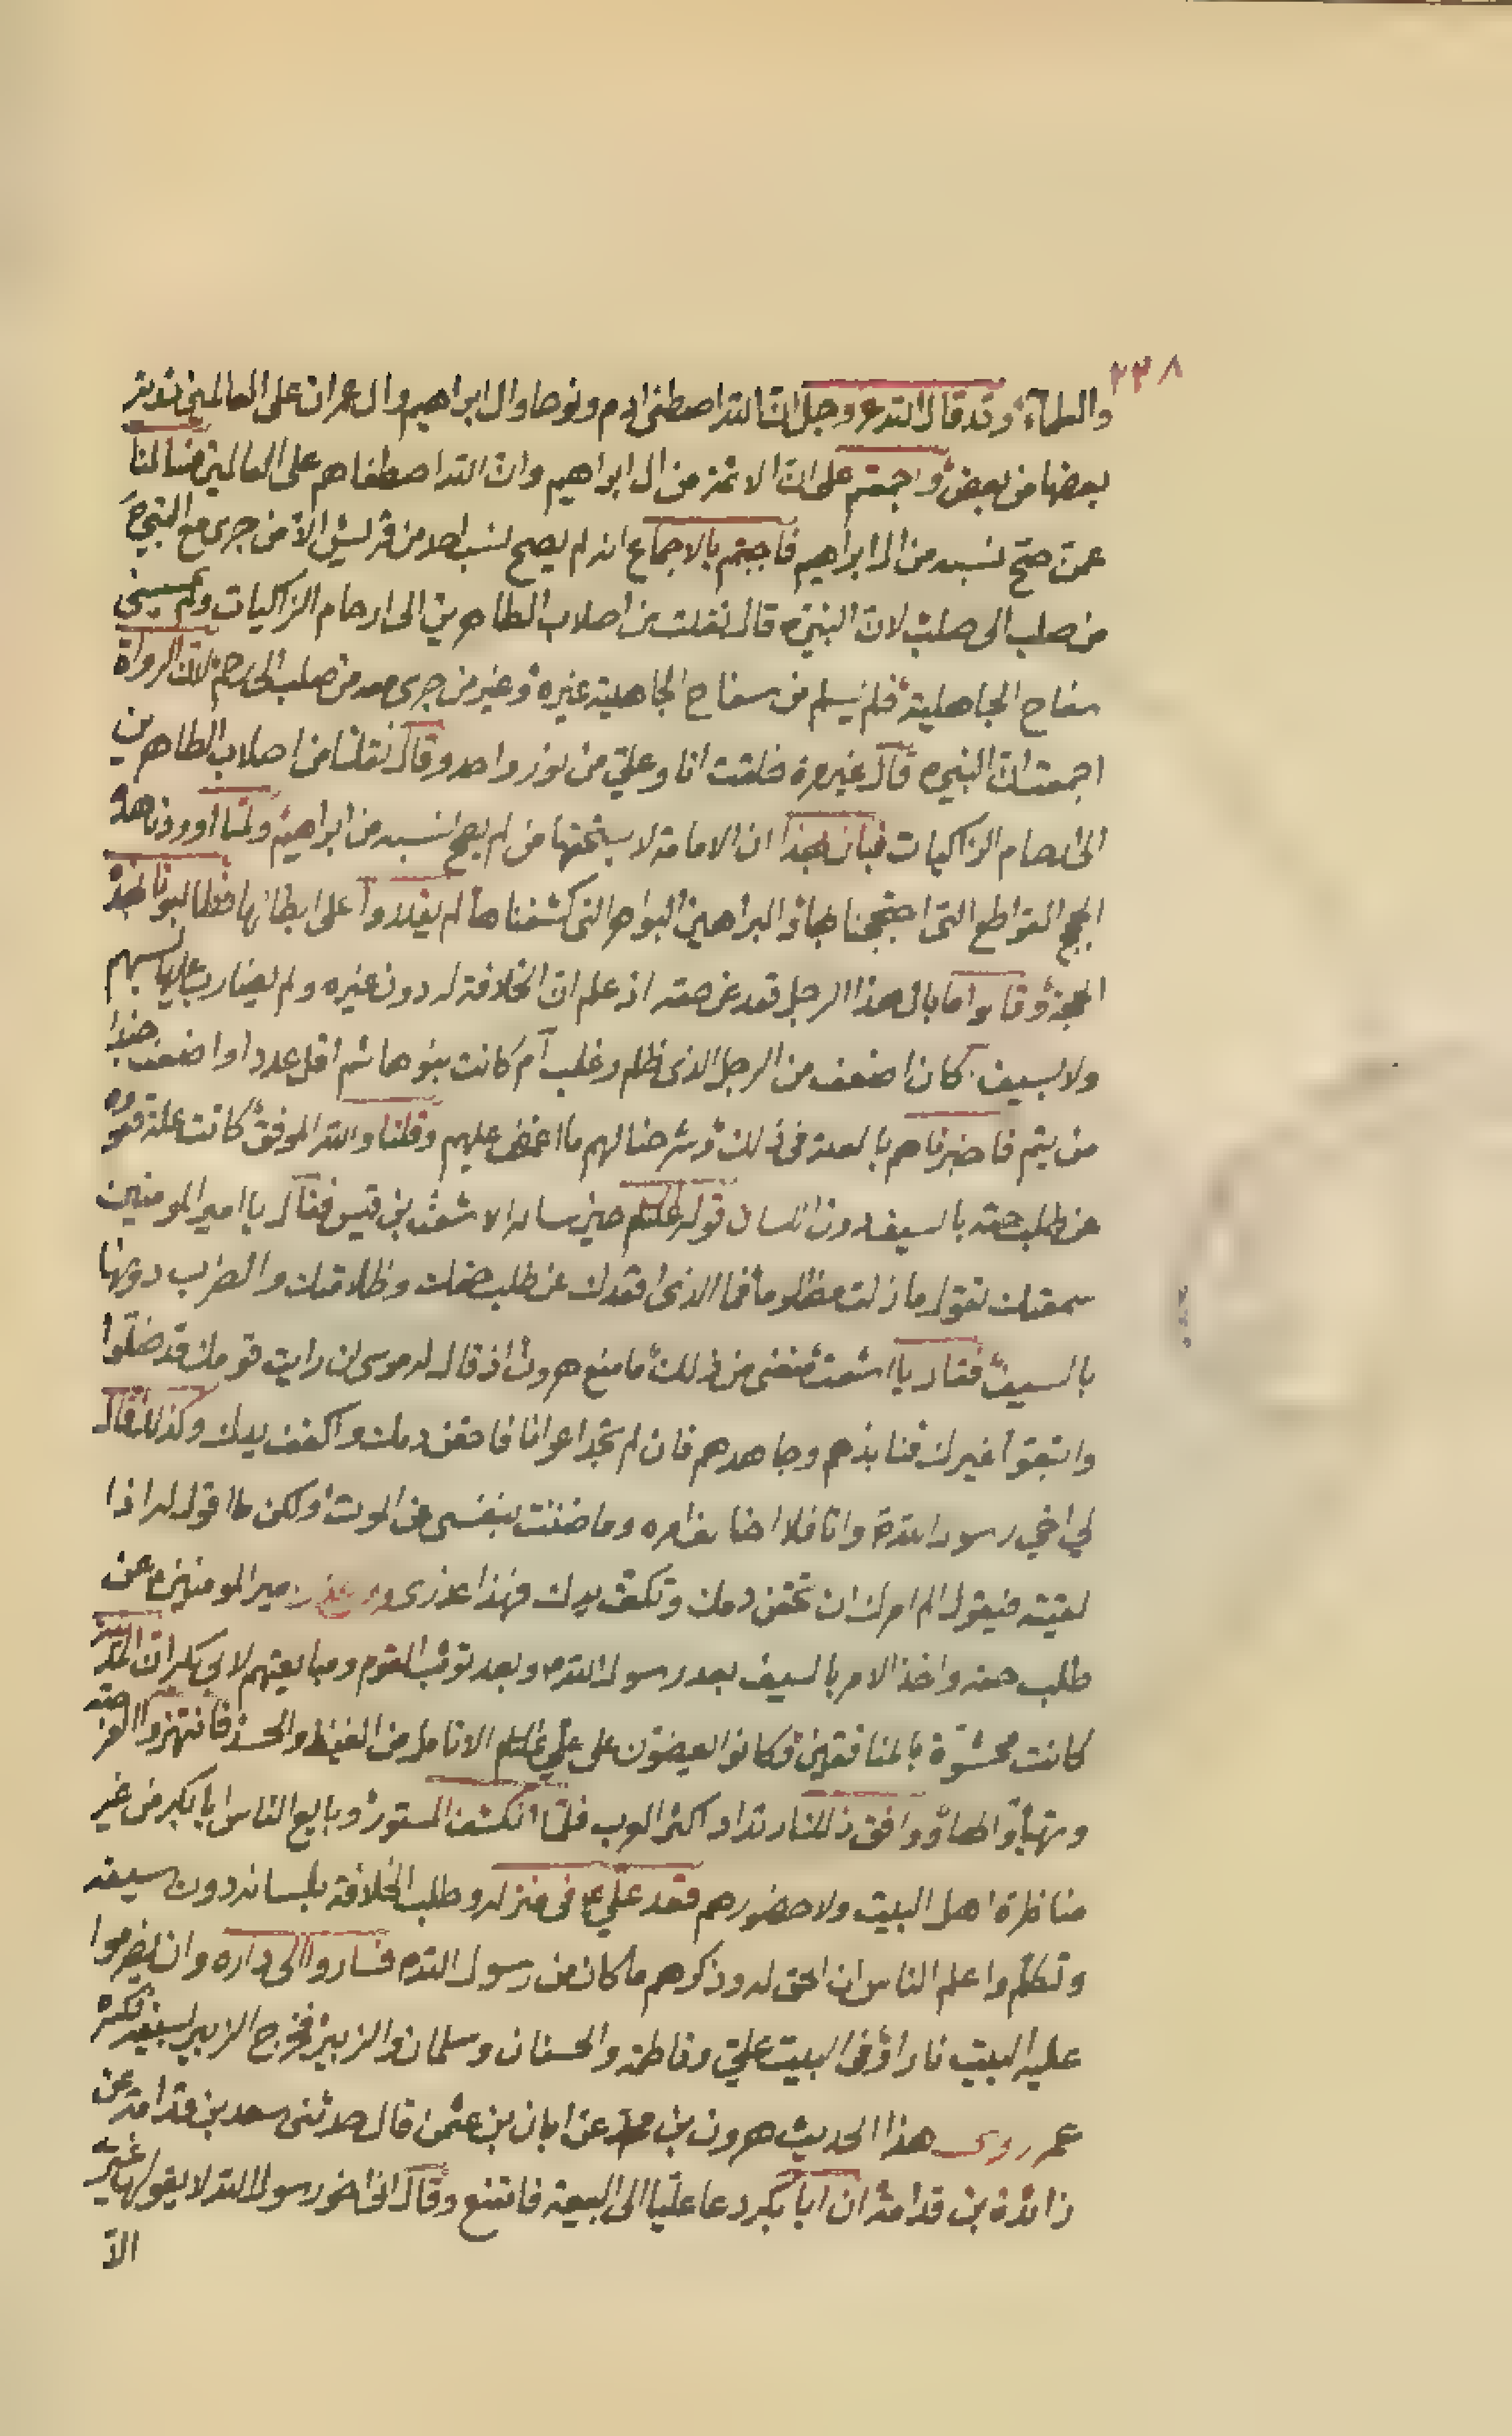 ٢٣٨
والعلماء وقد قال الله عز وجل ان الله اصطفى ادم ونوحا وال ابراهيم وال عمران على العالمين ذرية
بعضها من بعض واجمعتم على ان الائمة من ال ابراهيم وان الله اصطفاهم على العالمين فسالنا
عمن صح نسبه من ال ابراهيم فاجبتم بالاجماع انه لم يصح نسب احد من قريش الا من جرى مع النبي ص
من صلب الى صلب لان النبي ص قال نقلت من اصلاب الطاهرين الى ارحام الزاكيات ولم يمسني
سفاح الجاهلية فلم يسلم من سفاح الجاهلية غيره وغير من جرى معه من صلب الى رحم لان الرواة
اجمعت ان النبي ص قال غير مرة خلقت انا وعلي من نور واحد وقال نقلنا من اصلاب الطاهرين
الى ارحام الزاكيات فبان بهذا ان الامامة لا يستحقها من لم يصح نسبه من ابراهيم ولما اوردنا هذه
الحجج القواطع التي احتججنا بها والبراهين البواهر التي كشفناها لم يقدروا على ابطالها فطالبونا بهذه
الحجة وقالوا ما بال هذا الرجل قعد عن حقه اذ علم ان الخلافة له دون غيره ولم يضارب عليها بسهم
ولا بسيف كان اضعف من الرجل الذي ظلم وغلب ام كانت بنو هاشم اقل عددا واضعف جندا
من تيم فاخبرناهم بالعلة في ذلك وشرحنا لهم ما اغمض عليهم وقلنا والله الموفق كانت علة قعوده
عن طلب حقه بالسيف دون اللسان قوله عليلم حين ساله الاشعث بن قيس فقال يا امير المومنين
سمعتك تقول ما زلت مظلوما فما الذي اقعدك عن طلب حقك وظلامتك والضرب دونها
بالسيف فقال يا اشعث منعني من ذلك ما منع هرون اذ قال له موسى ان رايت قومك قد ضلوا
واتبعوا غيرك فنابذهم وجاهدهم فان لم تجد اعوانا فاحقن دمك واكفف يدك وكذلك قال
لي اخي رسول الله ص وانا فلا اخالف امره وما ضننت بنفسي عن الموت ولكن ما اقول له اذا
لقيته فيقول الم امرك ان تحقن دمك وتكف يدك فهذا عذري امير المومنين ع عن
طلب حقه واخذ الامر بالسيف بعد رسول الله ص وبعد توثب القوم ومبايعتهم لابي بكر ان المدينة
كانت محشوة بالمنافقين وكانوا يعضون على علي عليلم الانامل من الغيظ والحسد فانتهزوا الفرصة
وتهيأوا لها ووافق ذلك ارتداد اكثر العرب فلما انكشف المستور وبايع الناس ابا بكر من غير
مناظرة اهل البيت ولا حضورهم فقعد علي ع في منزله وطلب الخلافة بلسانه دون سيفه
وتكلم واعلم الناس ان الحق له وذكرهم ما كان من رسول الله ص فساروا الى داره وان يضرموا
عليه البيت نارا وفي البيت علي وفاطمة والحسنان وسلمان والزبير فخرج الزبير بسيفه فكسره
عمر روى هذا الحديث هرون بن محمد عن ابان بن عثمن قال حدثني سعد بن قدامة عن
زائدة بن قدامة ان ابا بكر دعا عليا الى البيعة فامتنع وقال اني اخو رسول الله لا يقولها غيري
الا